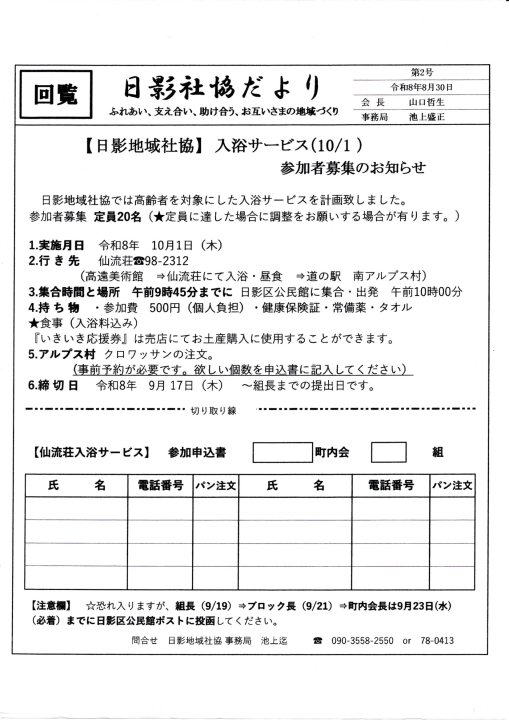 回覧
日影社協だより
ふれあい、支え合い、助け合う、お互いさまの地域づくり
第2号
令和8年8月30日
会 長 山口哲生
事務局 池上盛正
【日影地域社協】 入浴サービス(10/1 )
参加者募集のお知らせ
日影地域社協では高齢者を対象にした入浴サービスを計画致しました。
参加者募集 定員20名（★定員に達した場合に調整をお願いする場合が有ります。）
1.実施月日 令和8年 10月1日（木）
2.行 き 先 仙流荘☎98-2312
（高遠美術館 ⇒仙流荘にて入浴・昼食 ⇒道の駅 南アルプス村）
3.集合時間と場所 午前9時45分までに 日影区公民館に集合・出発 午前10時00分
4.持 ち 物 ・参加費 500円（個人負担）・健康保険証・常備薬・タオル
★食事（入浴料込み）
『いきいき応援券』は売店にてお土産購入に使用することができます。
5.アルプス村 クロワッサンの注文。
（事前予約が必要です。欲しい個数を申込書に記入してください）
6.締 切 日 令和8年 9月 17日（木） ～組長までの提出日です。
切り取り線
【仙流荘入浴サービス】 参加申込書 町内会 組
氏 名 電話番号 パン注文 氏 名 電話番号 パン注文
【注意欄】 ☆恐れ入りますが、組長（9/19）⇒ブロック長（9/21）⇒町内会長は9月23日(水)
（必着）までに日影区公民館ポストに投函してください。
問合せ 日影地域社協 事務局 池上迄 ☎ 090-3558-2550 or 78-0413